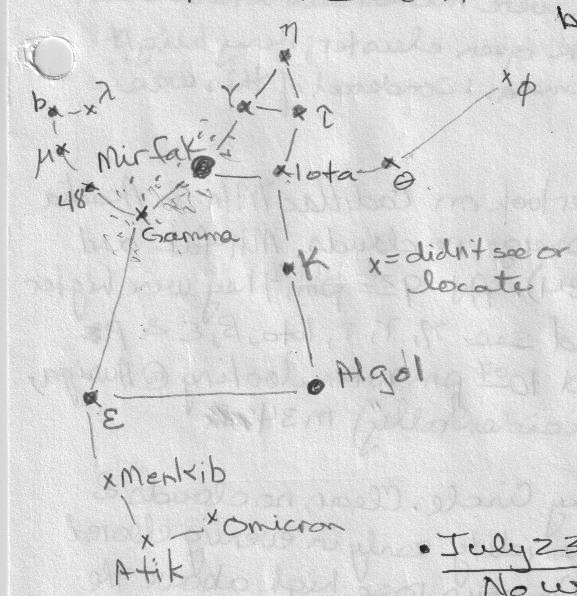 b
η
φ
b
λ
γ
τ
μ
Mirfak
Iota
θ
48
Gamma
K
x = didn't see or
locate
Algol
ε
Menkib
Omicron
Atik
• July 23